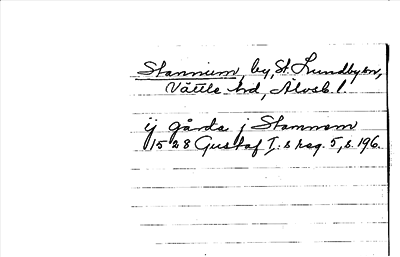 Stannum, by, St. Lundby sn,
Vättle hd, Älvsb. l.
ij gårda j Stamnom
1528 Gustaf I:s reg. 5, s. 196.